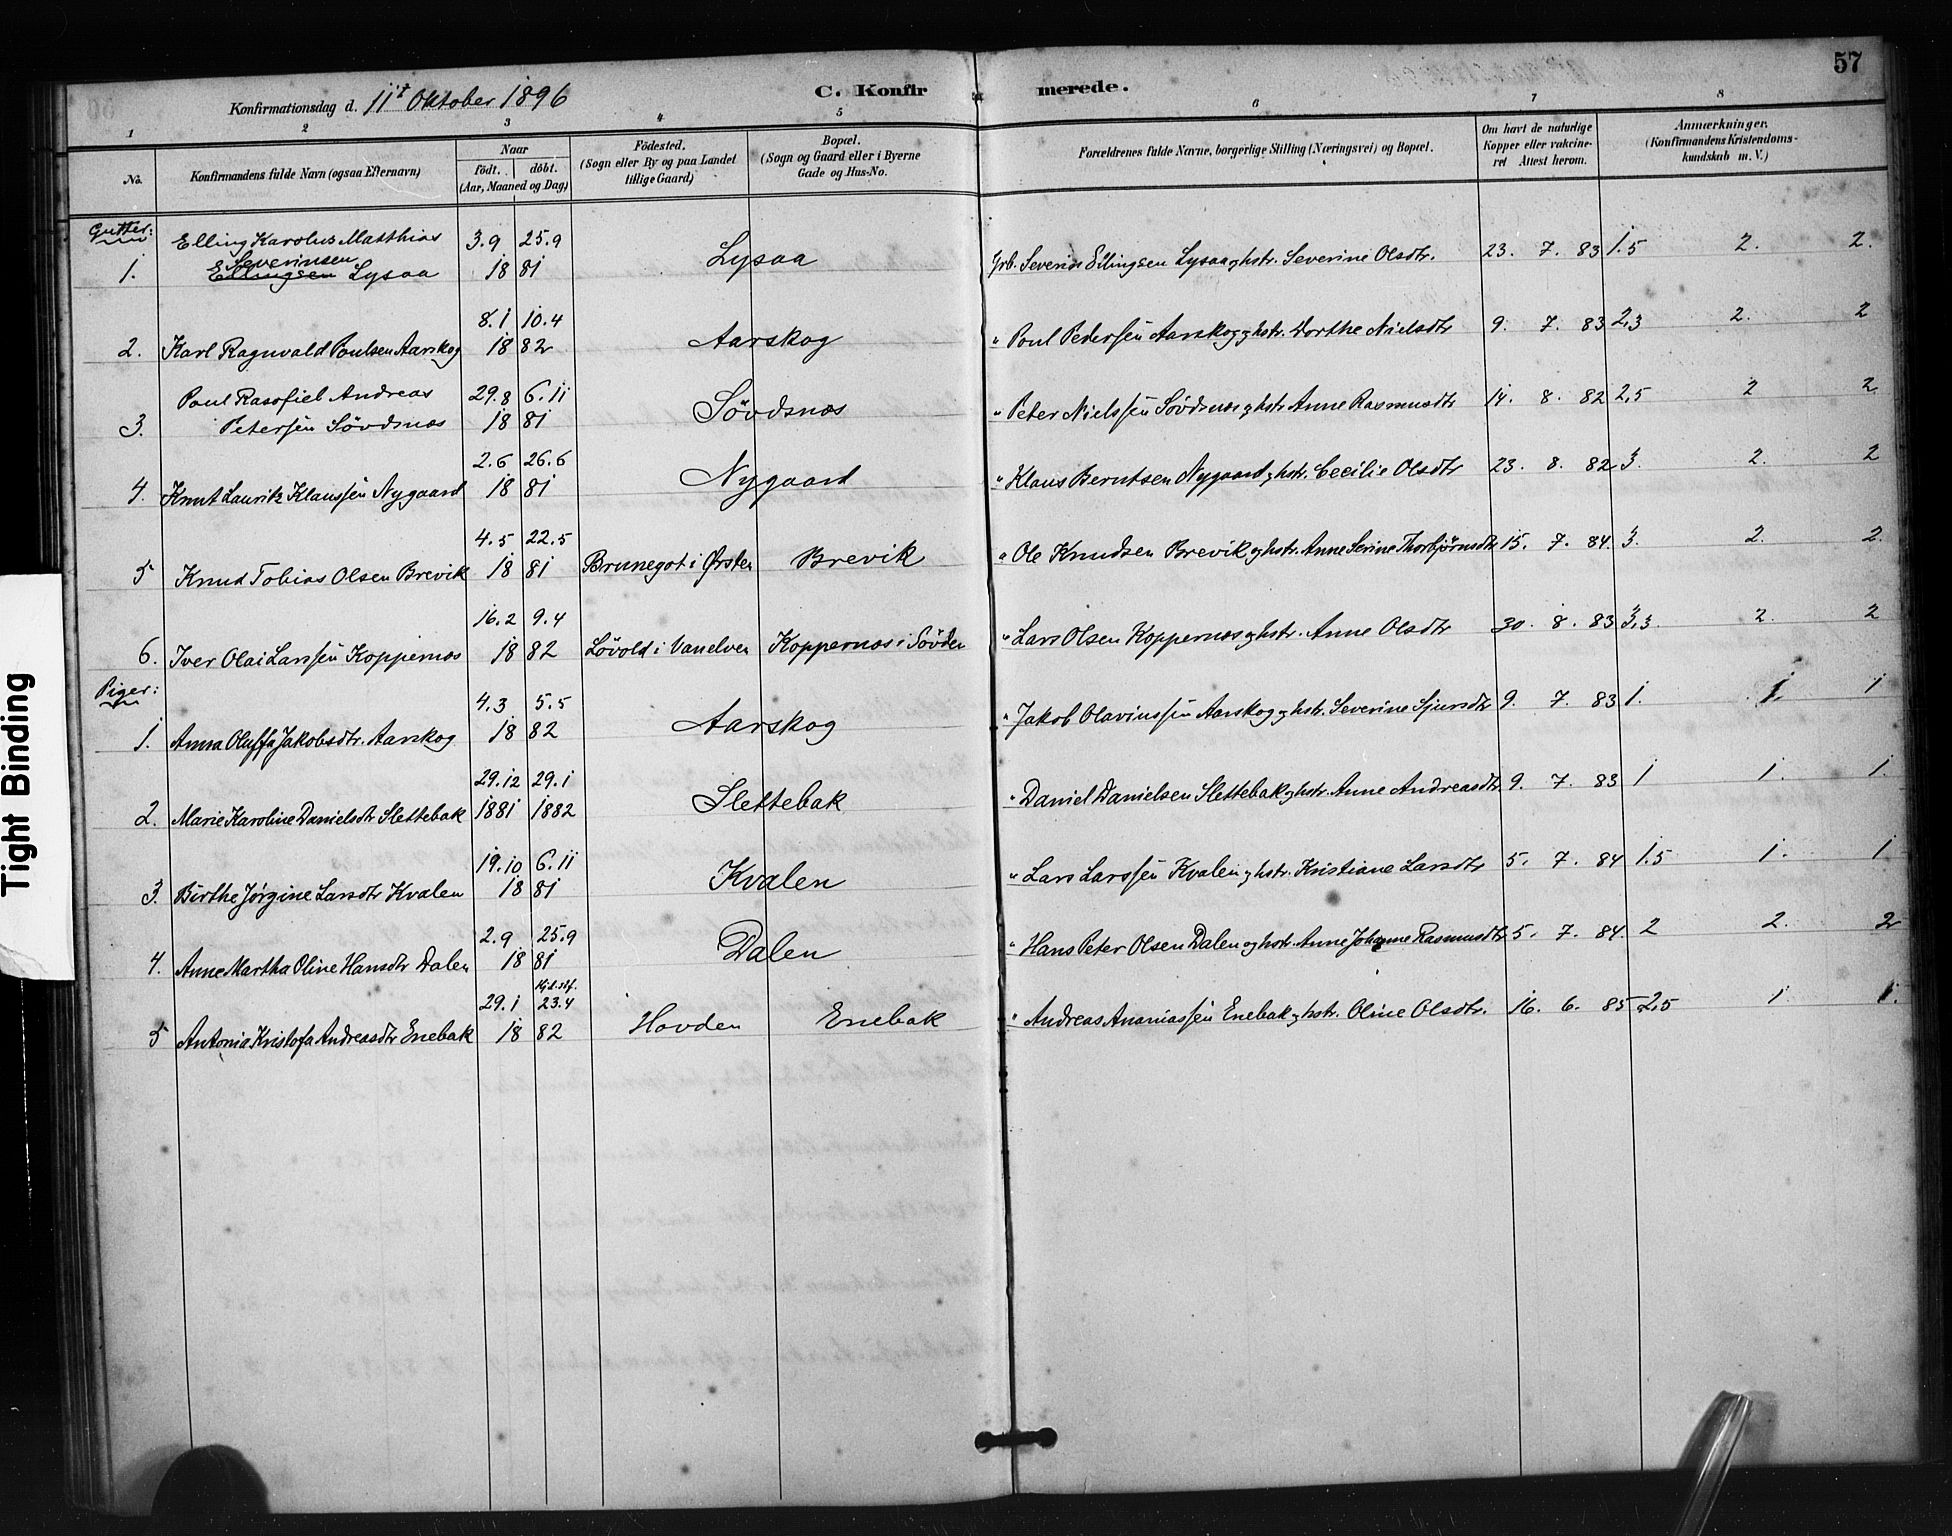 57
Konfirmationsdag d. 11te Oktober 1896 C. Konfirmerede.
1 2 3 4 5 6 7 8
No. Konfirmandens fulde Navn (ogsaa Efternavn) Naar født. døbt. (Aar, Maaned og Dag) Födested. (Sogn eller By og paa Landet tillige Gaard) Bopæl. (Sogn og Gaard eller i Byerne Gade og Hus-No. Forældrenes fulde Navne, borgerlige Stilling (Næringsvei) og Bopæl. Om havt de naturlige Kopper eller vakcineret Attest herom. Anmærkninger. (Konfirmandens Kristendomskundskab m. V.)
Gutter:
Elling Karolus Matthias 3.9 25.9
1. Severinsen Ellingsen Lysaa 18 81 Lysaa Grb. Severin Ellingsen Lysaa ghstr. Severine Olsdtr. 23. 7. 83 1.5 2. 2.
8.1 10.4
2. Karl Ragnvald Poulsen Aarskog 18 82 Aarskog " Poul Pedersen Aarskog ghstr. Dorthe Nielsdtr 9. 7. 83 2,3 2. 2
Poul Rasofiel Andreas 29.8 6.11
3. Petersen Sövdsnæs 18 81 Sövdsnæs " Peter Nielssen Sövdsnæs ghstr Anne Rasmusdtr 14. 8. 82 2,5 2 2
2.6 26.6
4. Knut Laurits Klaussen Nygaard 18 81 Nygaard " Klaus Berntsen Nygaard ghstr. Cecilie Olsdtr 23. 8. 82 3. 2. 2
4.5 22.5
5 Knud Tobias Olsen Brevik 18 81 Brunegot i Ørsten Brevik " Ole Knudsen Brevik ghstr. Anne Serine Thorbjørnsdtr 15. 7. 84. 3. 2. 2.
16.2 9.4
6. Iver Olai Larssen Koppernæs 18 82 Lövold i Vanelven Koppernæs i Sövden " Lars Olsen Koppernæs ghstr. Anne Olsdtr 30. 8. 83 3,3. 2. 2
Piger:
4.3 5.5
1. Anna Oluffa Jakobsdtr. Aarskog 18 82 Aarskog " Jakob Olavinssen Aarskog ghstr. Severine Sjursdtr 9. 7. 83 1. 1. 1
29.12 29.1
2. Marie Karoline Danielsdtr Slettebak 1881 1882 Slettebak " Daniel Danielsen Slettebak ghstr. Anne Andreasdtr 9. 7. 83 1 1. 1.
19.10 6.11
3. Birthe Jørgine Larsdtr Kvalen 18 81 Kvalen " Lars Larssen Kvalen ghstr. Kristiane Larsdtr 5. 7. 84 1.5 1. 1
2.9 25.9
4. Anne Martha Oline Hansdtr Dalen 18 81 Dalen " Hans Peter Olsen Dalen ghstr. Anne Johanne Rasmusdtr 5. 7. 84. 2 2. 2
29.1 23.4
5 Antonia Kristofa Andreasdtr Enebak 18 82 Hovden Enebak " Andreas Ananiassen Enebak ghstr. Oline Olsdtr. 16. 6. 85 2,5 1 1.
Tight Binding